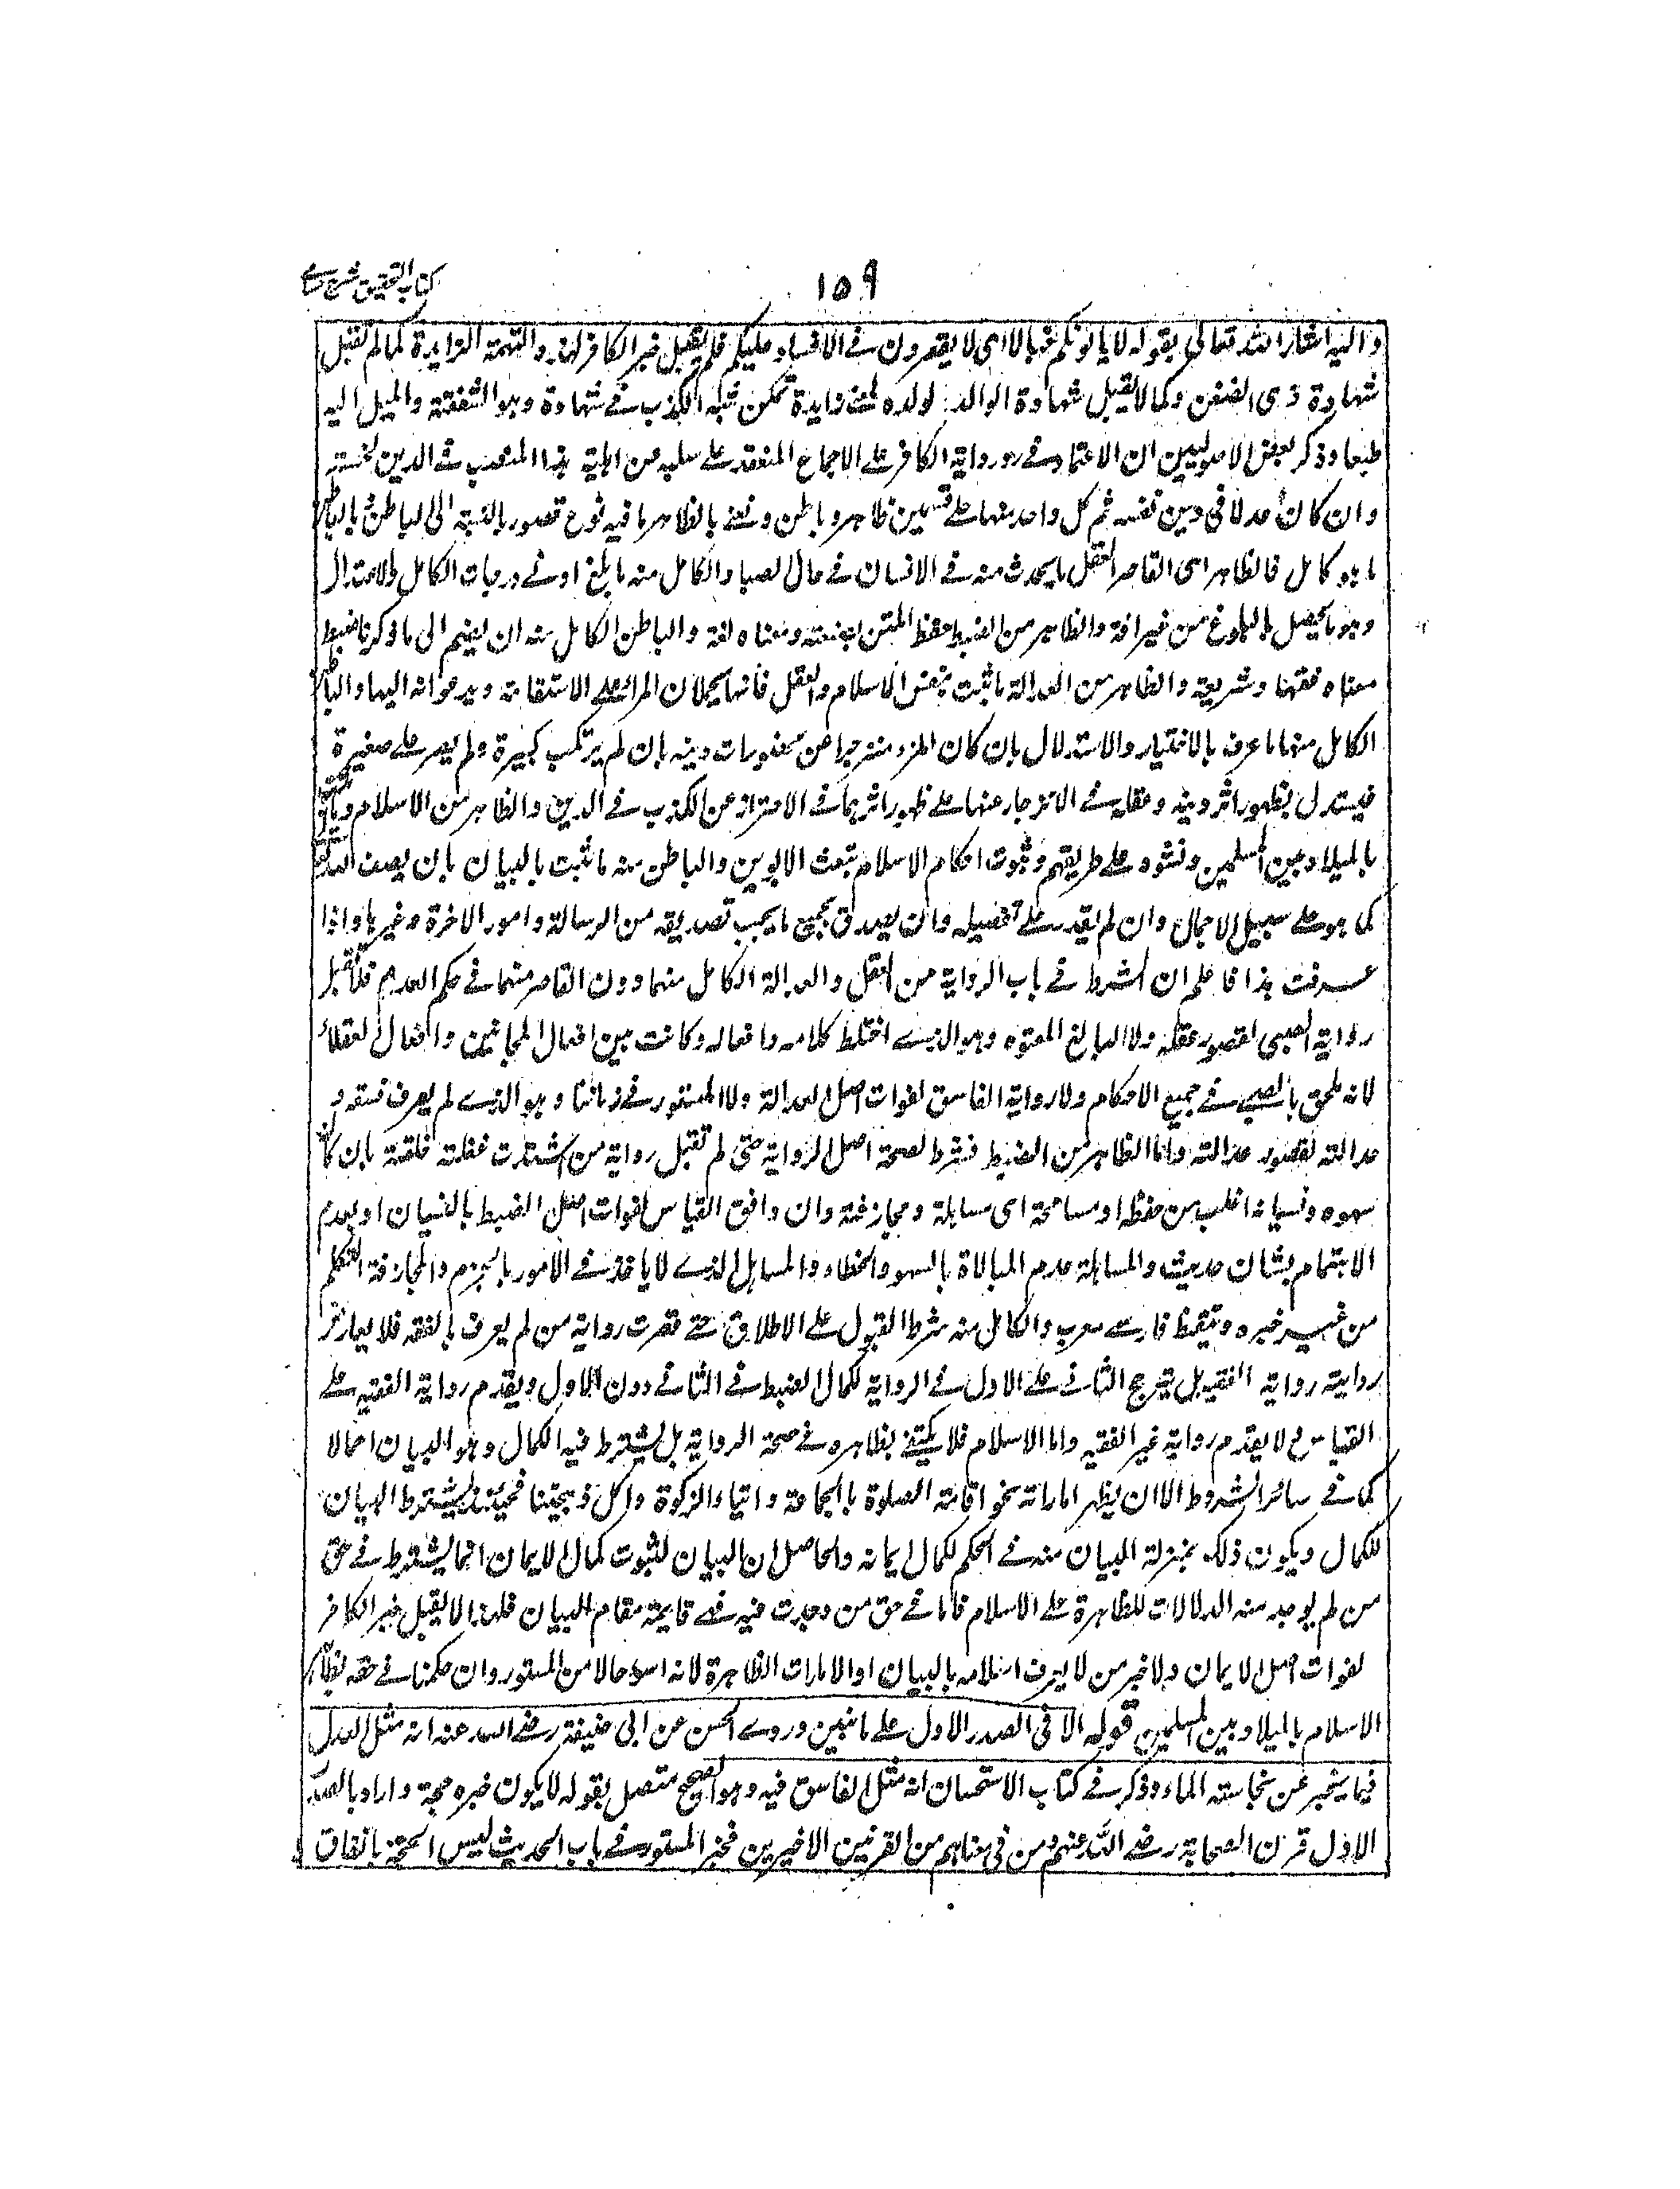 ١٥٩
كتاب التحقيق شرح
واليه اشار الله تعالى بقوله لا يالونكم خبالا اى لا يقصرون فى الافساد عليكم فلم يقبل خبر الكافر لهذه التهمة الزايدة كما لم تقبل
شهادة ذى الضغن وكما لا يقبل شهادة الوالد لولده لمعنى زايدة تمكن شبهة الكذب فى شهادة وهو الشفقة والميل اليه
طبعا وذكر بعض الاصوليين ان الاعتماد فى رد رواية الكافر على الاجماع المنعقد على سلبه عن اهلية هذا المنصب فى الدين لخسته
وان كان عدلا فى دين نفسه ثم كل واحد منها على قسمين ظاهر وباطن ونعنى بالظاهر ما فيه نوع قصور بالنسبة الى الباطن وبالباطن
ما هو كامل فالظاهر اى القاصر العقل ما يحدث منه فى الانسان فى حال الصبا والكامل منه ما بلغ اونى درجات الكامل والاعتدال
وهو ما يحصل بالبلوغ من غير افة والظاهر من الضبط حفظ المتن بصيغته ومعناه لغة والباطن الكامل منه ان يضم الى ما ذكرنا ضبط
معناه فقها وشريعة والظاهر من العدالة ما ثبت بنفس الاسلام والعقل فانهما يحملان المرء على الاستقامة ويدعوانه اليها والباطن
الكامل منهما ما عرف بالاختيار والاستدلال بان كان المرء منزجرا عن محظورات دينه بان لم يرتكب كبيرة ولم يصر على صغيرة
فيستدل بظهور اثر دينه وعقله فى الانزجار عنها على ظهور اثرهما فى الاحتراز عن الكذب فى الدين والظاهر من الاسلام ما يثبت
بالميلاد بين المسلمين ونشوه على طريقهم وثبوت احكام الاسلام بتبعية الابوين والباطن منه ما ثبت بالبيان بان يصف الله تعالى
كما هو على سبيل الاجمال وان لم يقدر على تفصيله وان يصدق بجميع ما يجب تصديقه من الرسالة وامور الاخرة وغيرها واذا
عرفت هذا فاعلم ان الشرط فى باب الرواية من العقل والعدالة الكامل منهما دون القاصر منهما فى حكم العدم فلا تقبل
رواية الصبى لقصور عقله ولا البالغ المعتوه وهو الذى اختلط كلامه وافعاله وكانت بين افعال المجانين وافعال العقلاء
لانه ملحق بالصبى فى جميع الاحكام ولا رواية الفاسق لفوات اصل العدالة ولا المستور فى زماننا وهو الذى لم يعرف فسقه و
عدالته لقصور عدالته واما الظاهر من الضبط فشرط لصحة اصل الرواية حتى لم تقبل رواية من اشتدت غفلته خلقة بان كان
سهوه ونسيانه اغلب من حفظه او مسامحة اى مساهلة ومجازفة وان وافق القياس لفوات اصل الضبط بالنسيان او بعدم
الاهتمام بشان حديث والمساهلة عدم المبالاة بالسهو والخطاء والمساهل الذى لا ياخذ فى الامور بالجزم والمجازفة التكلم
من غير خبره وتيقظ فارسى معرب والكامل منه شرط القبول على الاطلاق حتى قصرت رواية من لم يعرف بالفقه فلا يعارض
روايته رواية الفقيه بل يترجح الثانى على الاول فى الرواية لكمال الضبط فى الثانى دون الاول ويقدم رواية الفقيه على
القياس ولا يقدم رواية غير الفقيه واما الاسلام فلا يكتفى بظاهره فى صحة الرواية بل يشترط فيه الكمال وهو البيان اجمالا
كما فى سائر الشروط الا ان يظهر اماراته نحو اقامة الصلوة بالجماعة وايتاء الزكوة واكل ذبيحتنا فحينئذ لا يشترط البيان
للكمال ويكون ذلك بمنزلة البيان منه فى الحكم لكمال ايمانه والحاصل ان البيان لثبوت كمال الايمان انما يشترط فى حق
من لم يوجد منه الدلالات الظاهرة على الاسلام فاما فى حق من وجدت فيه فهى قايمة مقام البيان فلهذا لا يقبل خبر الكافر
لفوات اصل الايمان ولا خبر من لا يعرف اسلامه بالبيان او الامارات الظاهرة لانه اسوء حالا من المستور وان حكمنا فى حقه بظاهر
الاسلام بالميلاد بين المسلمين قوله الا فى الصدر الاول على ما نبين وروى الحسن عن ابى حنيفة رضى الله عنه انه مثل العدل
فيما يخبر عن نجاسته الماء وذكر فى كتاب الاستحسان انه مثل الفاسق فيه وهو الصحيح متصل بقوله لا يكون خبره حجة واراد بالصدر
الاول قرن الصحابة رضى الله عنهم ومن فى معناهم من القرنين الاخيرين فخبر المستور فى باب الحديث ليس الحجة باتفاق